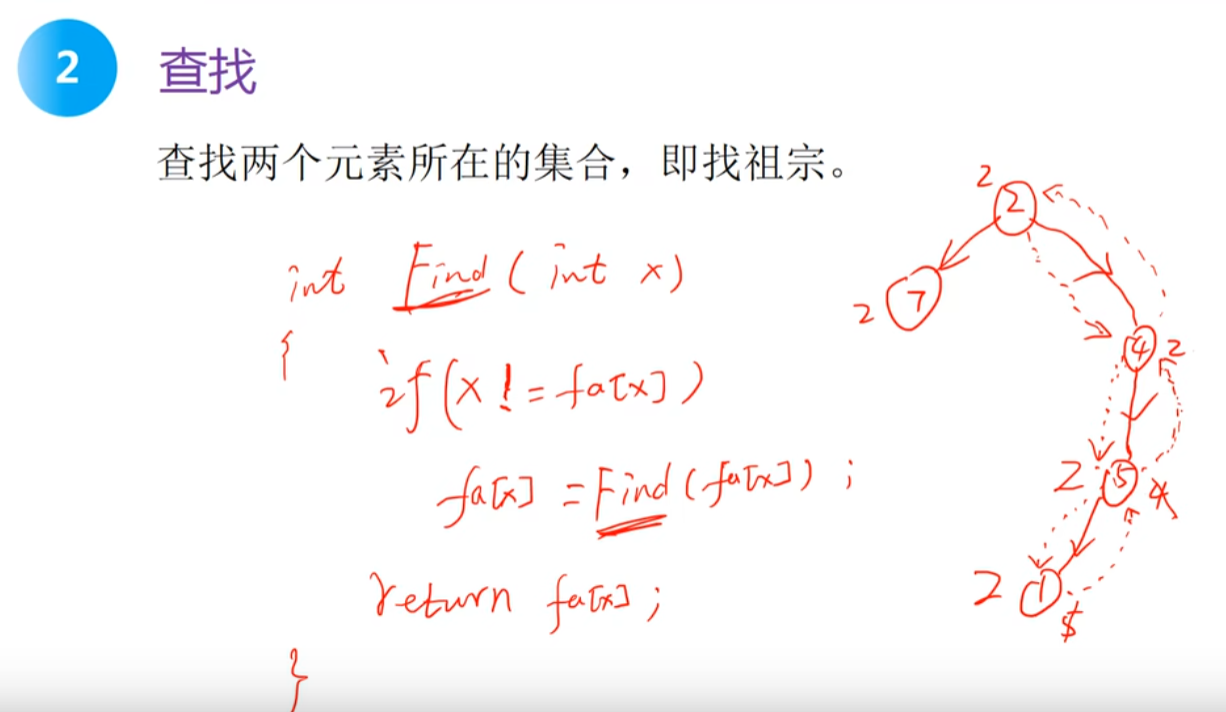 2 查找
查找两个元素所在的集合，即找祖宗。
int Find(int x)
{
if(x != fa[x])
fa[x] = Find(fa[x]);
return fa[x];
}
2 2
2 7
4 2
2 5 4
2 1
5